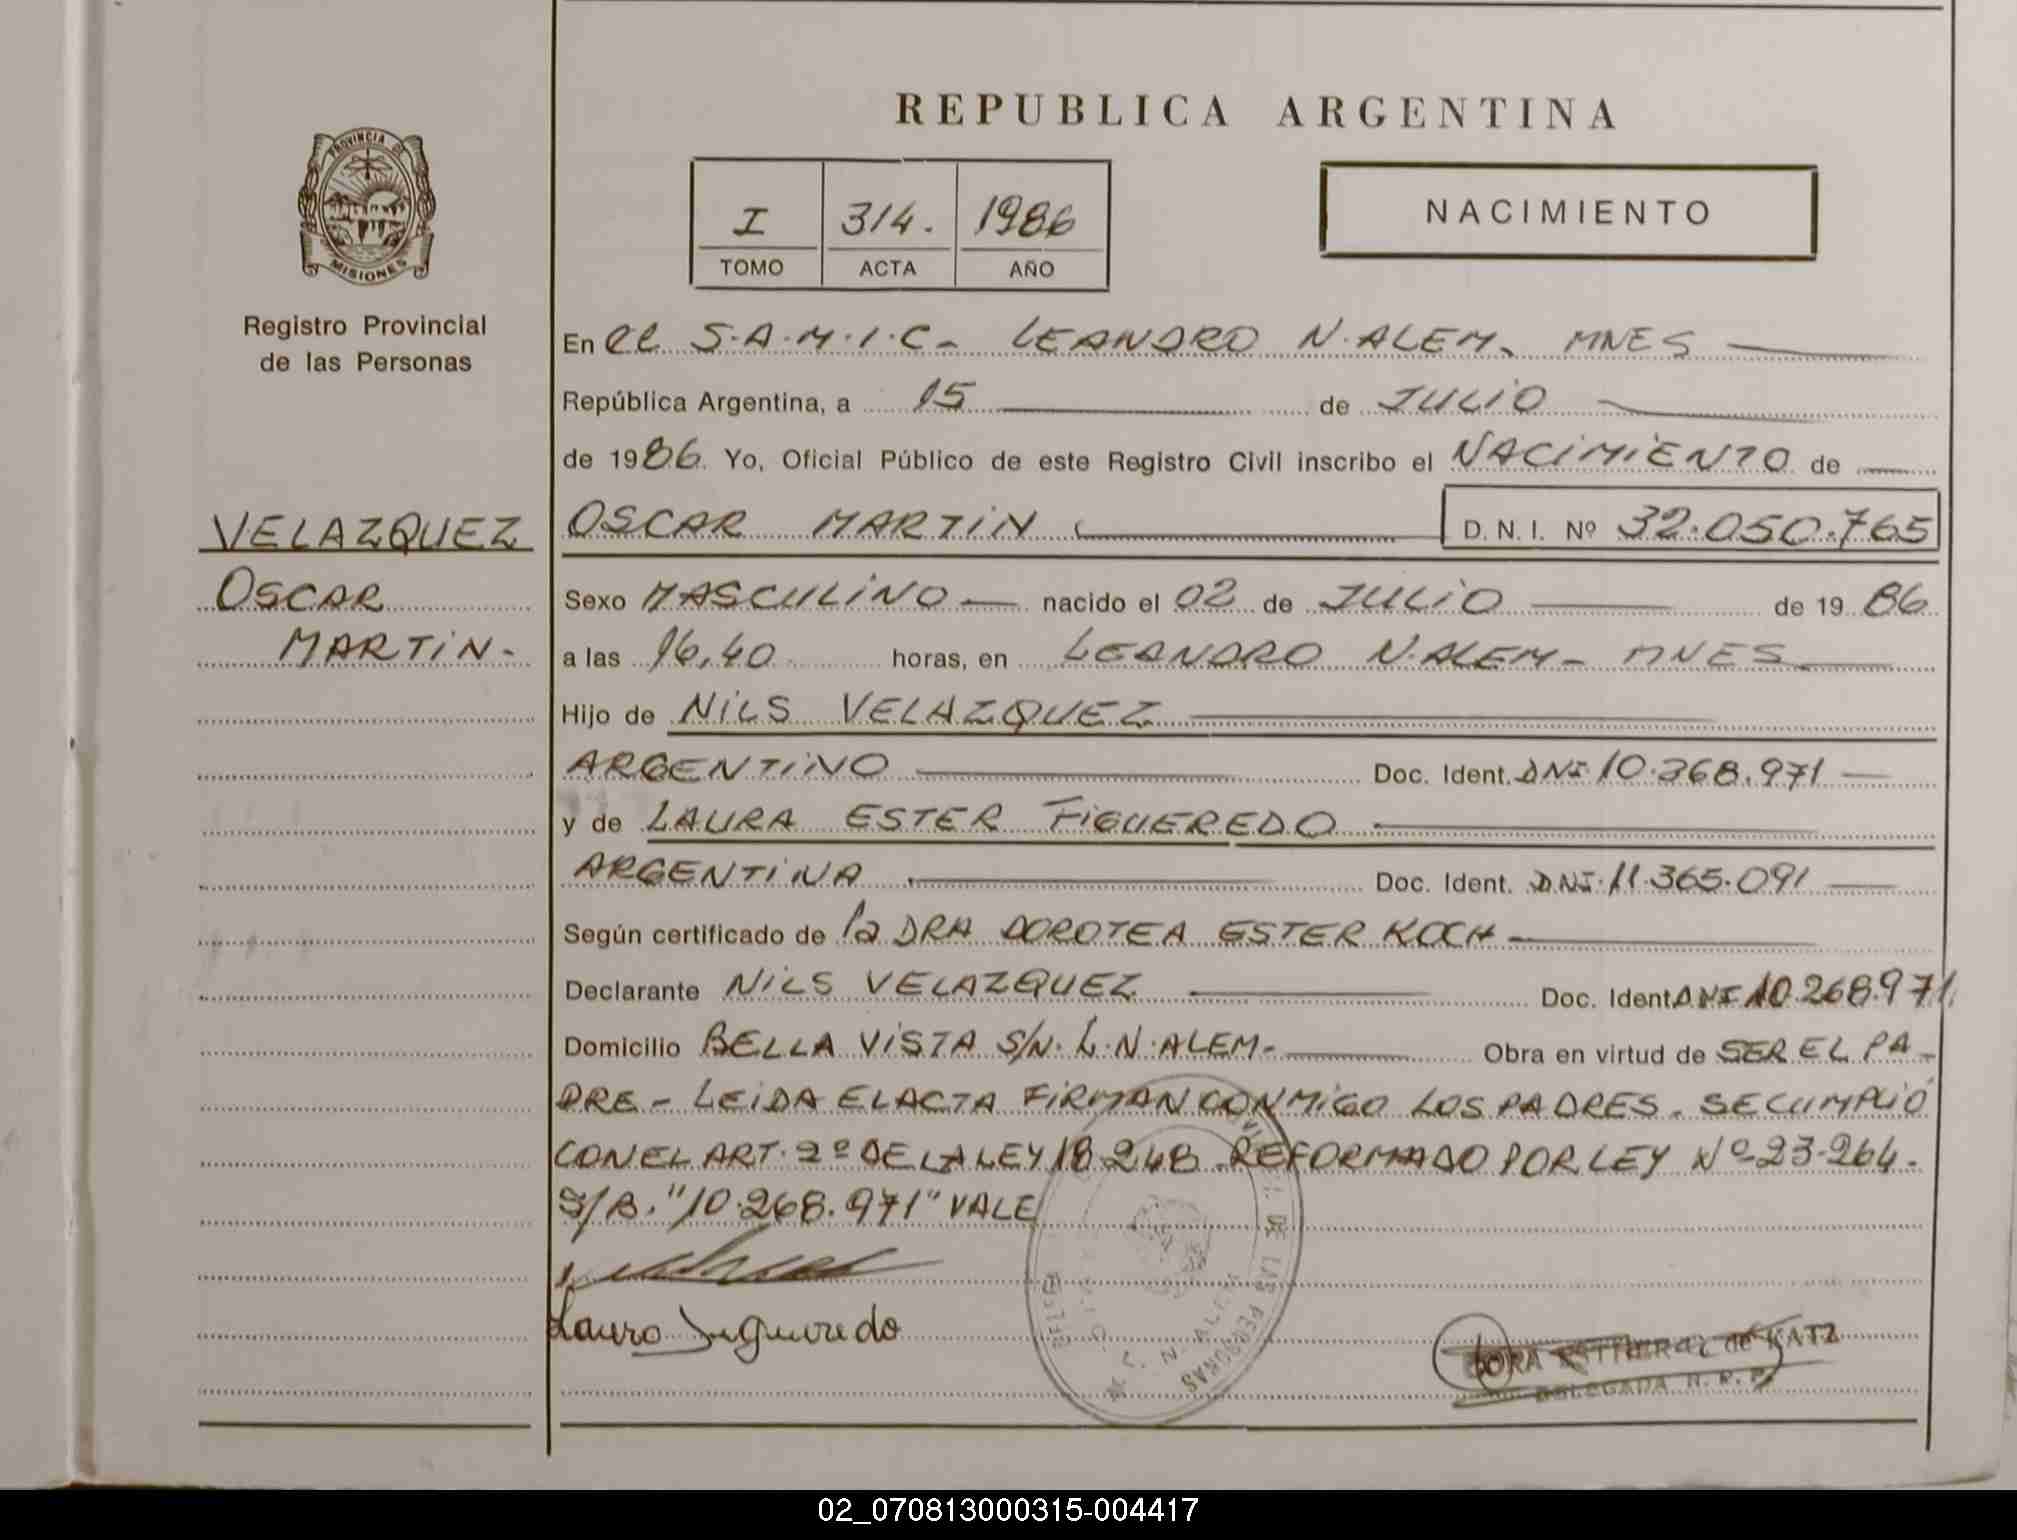 REPUBLICA ARGENTINA
PROVINCIA DE
MISIONES
Registro Provincial
de las Personas
I 314. 1986
TOMO ACTA AÑO
NACIMIENTO
En el S.A.M.I.C- LEANDRO N.ALEM. MNES
República Argentina, a 15 de JULIO
de 1986. Yo, Oficial Público de este Registro Civil inscribo el NACIMIENTO de
VELAZQUEZ
OSCAR
MARTIN-
OSCAR MARTIN D.N.I. Nº 32.050.765
Sexo MASCULINO nacido el 02 de JULIO de 1986
a las 16,40 horas, en LEANDRO N.ALEM- MNES
Hijo de NILS VELAZQUEZ
ARGENTINO Doc. Ident. DNI 10.268.971
y de LAURA ESTER FIGUEREDO
ARGENTINA Doc. Ident. DNI.11.365.091
Según certificado de la DRA DOROTEA ESTER KOCH
Declarante NILS VELAZQUEZ Doc. Ident. DNI 10.268.971
Domicilio BELLA VISTA S/N. L.N.ALEM- Obra en virtud de SER EL PA-
DRE- LEIDA EL ACTA FIRMAN CONMIGO LOS PADRES. SE CUMPLIÓ
CON EL ART. 2º DE LA LEY 18.248 REFORMADO POR LEY Nº 23.264.
S/B. "10.268.971" VALE
Laura Figueredo
DE LAS PERSONAS
L. N. ALEM
DORA de KATZ
DELEGADA R. P. P.
02_070813000315-004417